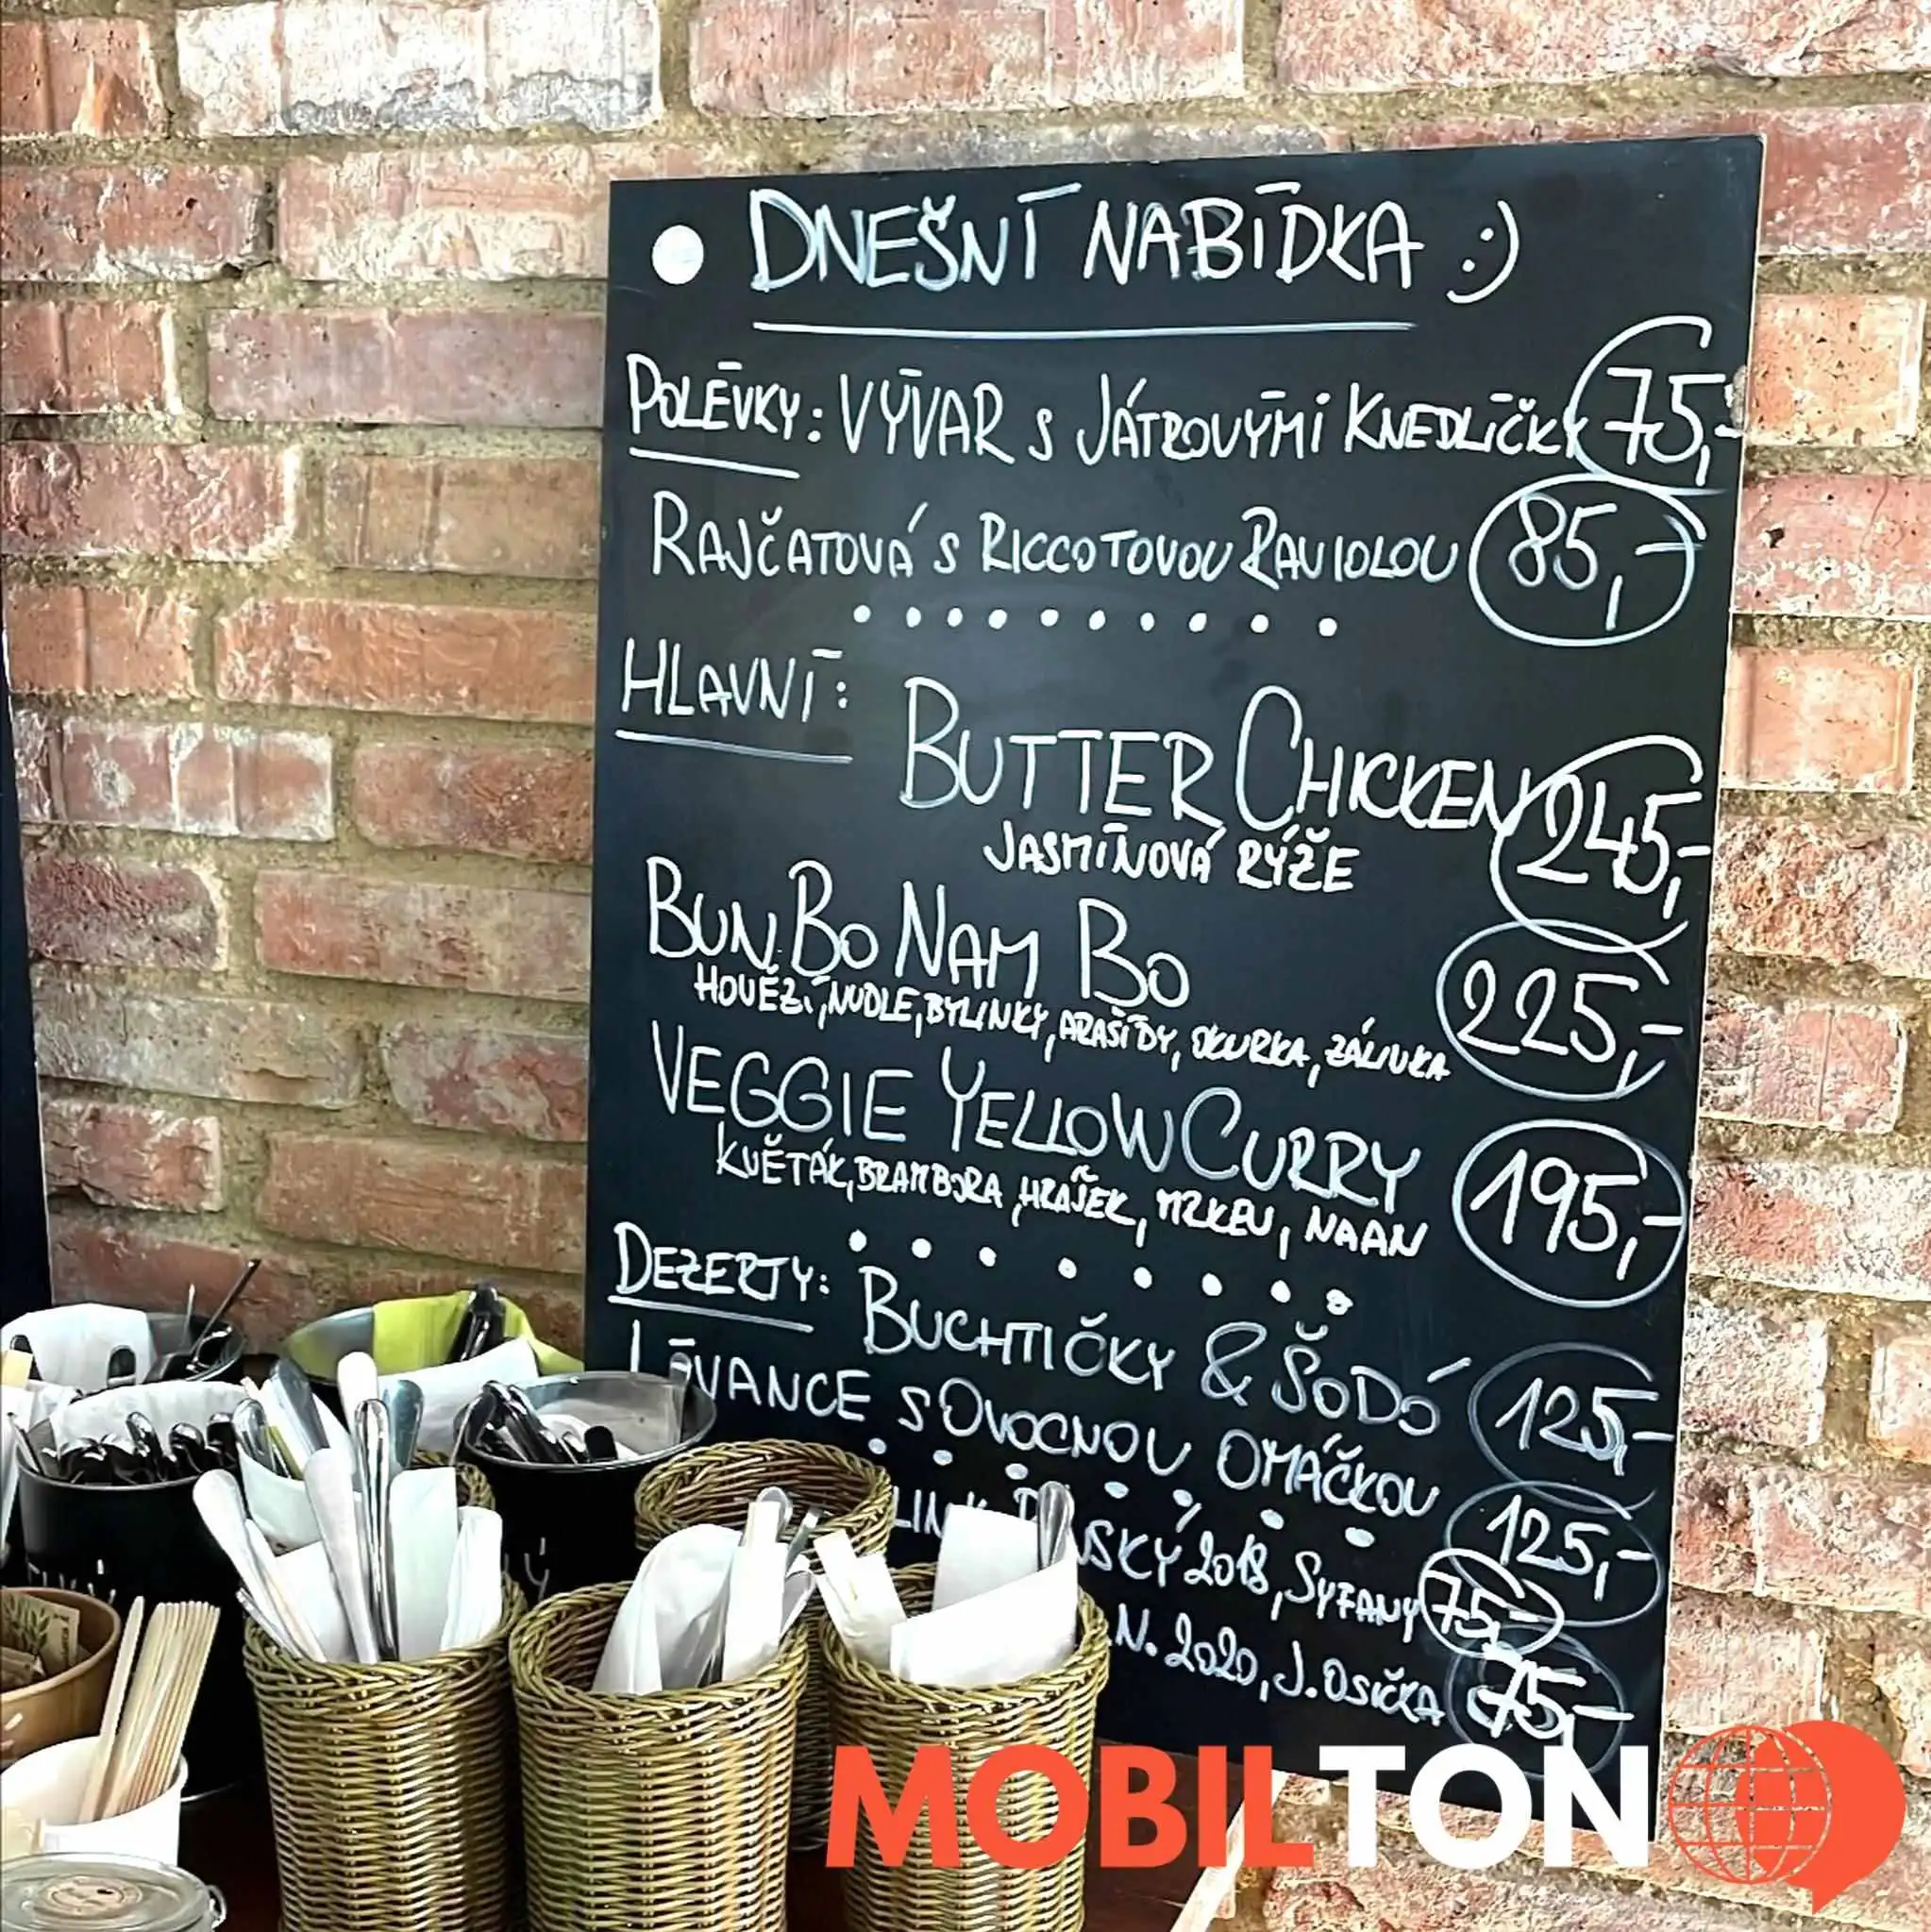 DNEŠNÍ NABÍDKA :)
POLÉVKY: VÝVAR S JÁTROVÝMI KNEDLÍČKY 75,-
RAJČATOVÁ S RICCOTOVOU RAVIOLOU 85,-
HLAVNÍ:
BUTTER CHICKEN 245,-
JASMÍNOVÁ RÝŽE
BUN BO NAM BO 225,-
HOVĚZÍ, NUDLE, BYLINKY, ARAŠÍDY, OKURKA, ZÁLIVKA
VEGGIE YELLOW CURRY 195,-
KVĚTÁK, BRAMBORA, HRÁŠEK, MRKEV, NAAN
DEZERTY: BUCHTIČKY & ŠODÓ 125,-
LÍVANCE S OVOCNOU OMÁČKOU 125,-
2018, SYFANY 75,-
N. 2020, J. OSIČKA 75,-
MOBILTON